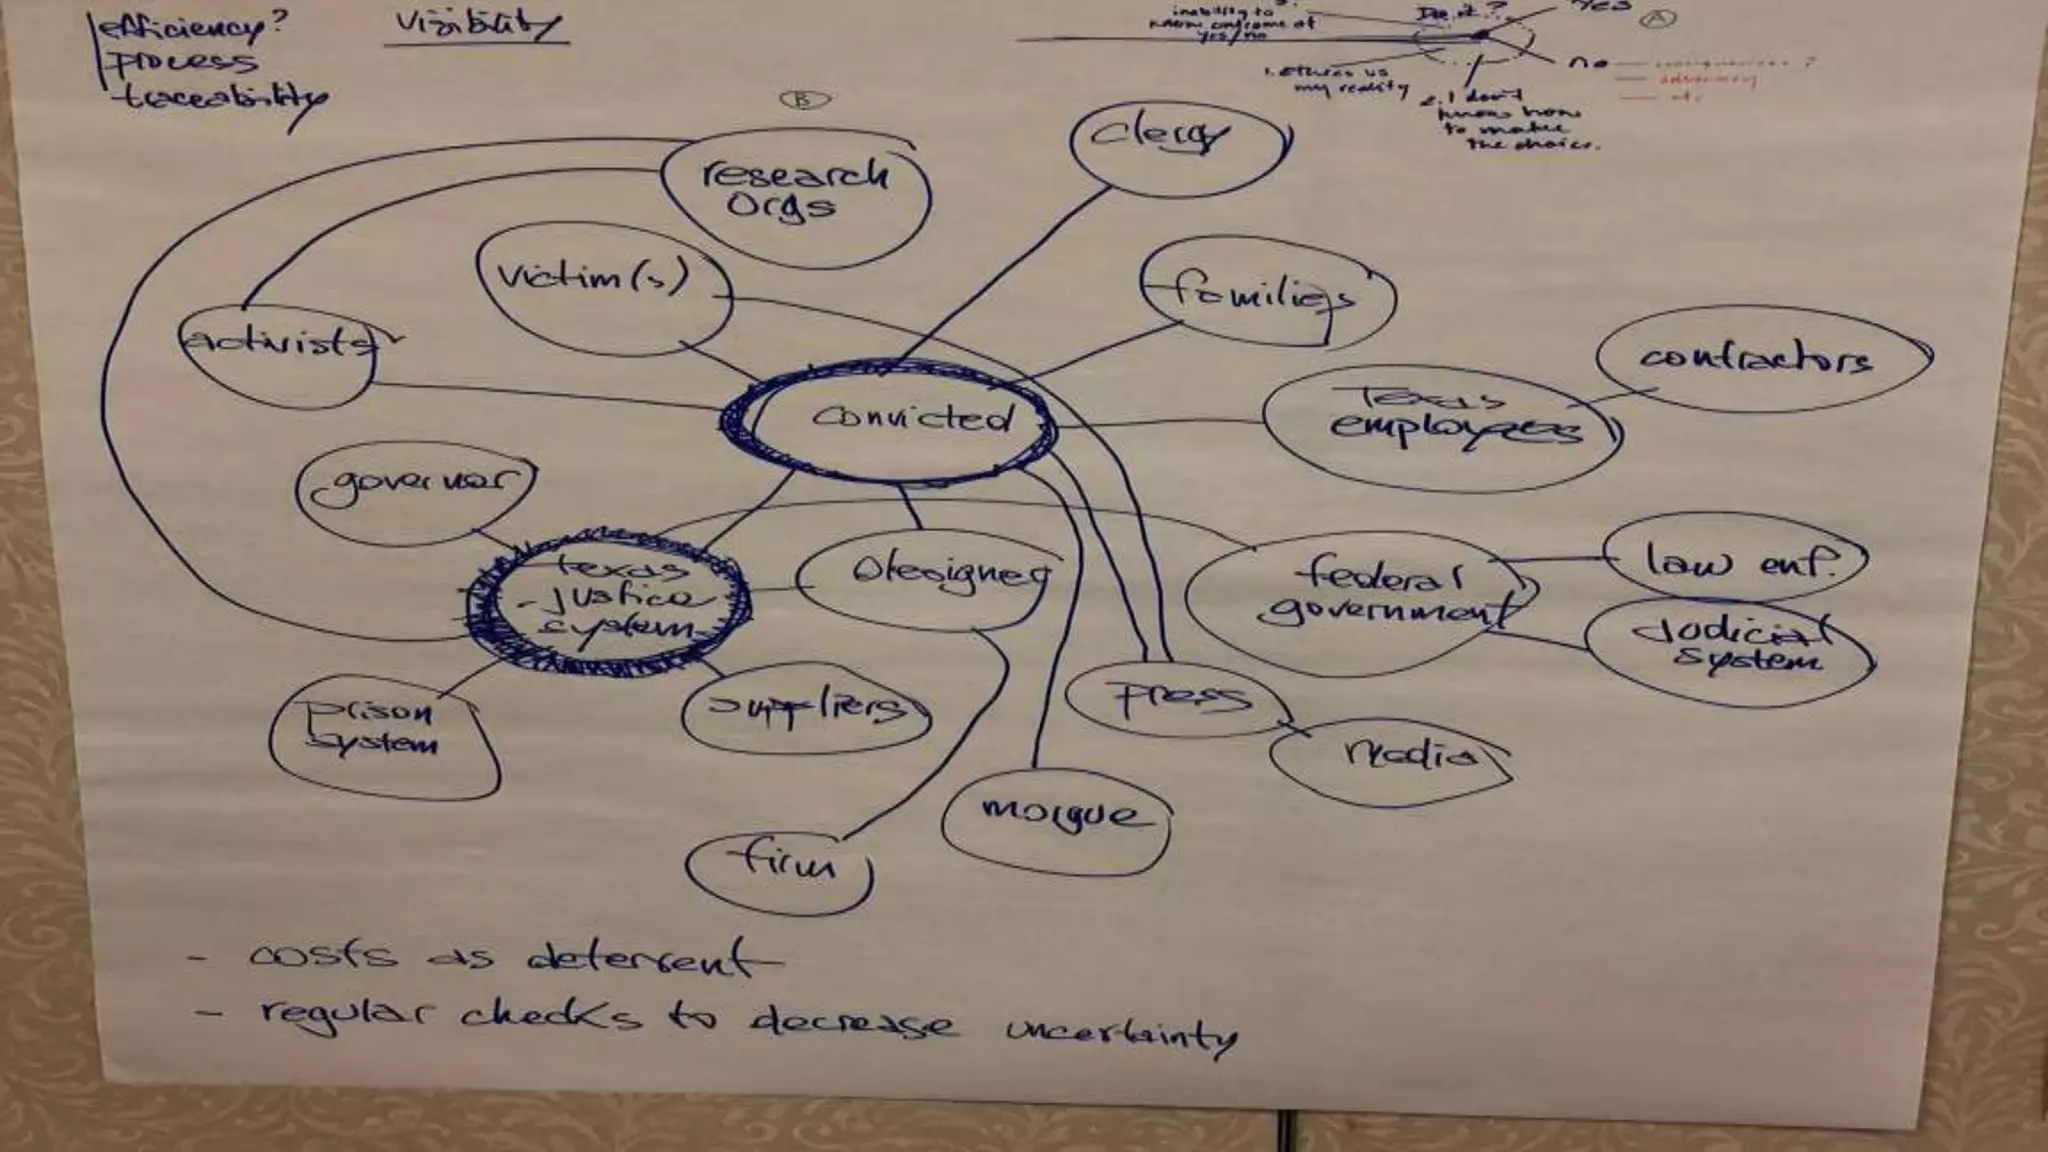 efficiency?
process
traceability
Visibility
inability to
know outcome at
yes/no
Do it?
Yes
A
no
1. ethics vs
my reality
2. I don't
know how
to make
the choice.
B
research
orgs
clergy
victim(s)
families
activists
contractors
Texas
employees
convicted
governor
texas
justice
system
Designer
federal
government
law enf.
Judicial
system
prison
system
suppliers
press
media
morgue
firm
- costs as deterrent
- regular checks to decrease uncertainty